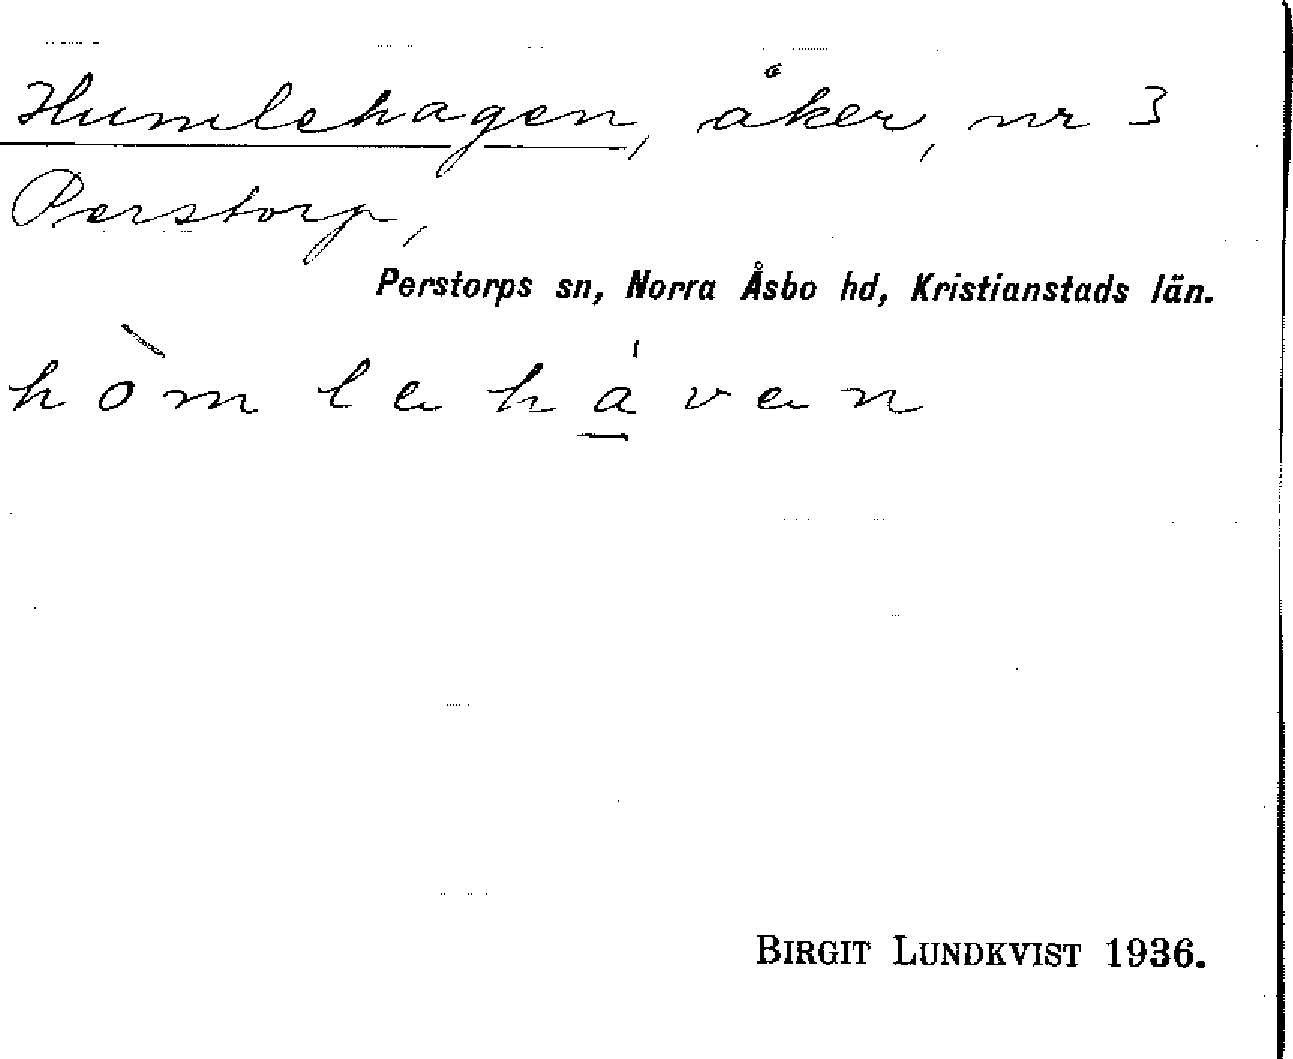 Humlehagen, åker, nr 3
Perstorp,
Perstorps sn, Norra Åsbo hd, Kristianstads län.
hòmlahávan
BIRGIT LUNDKVIST 1936.